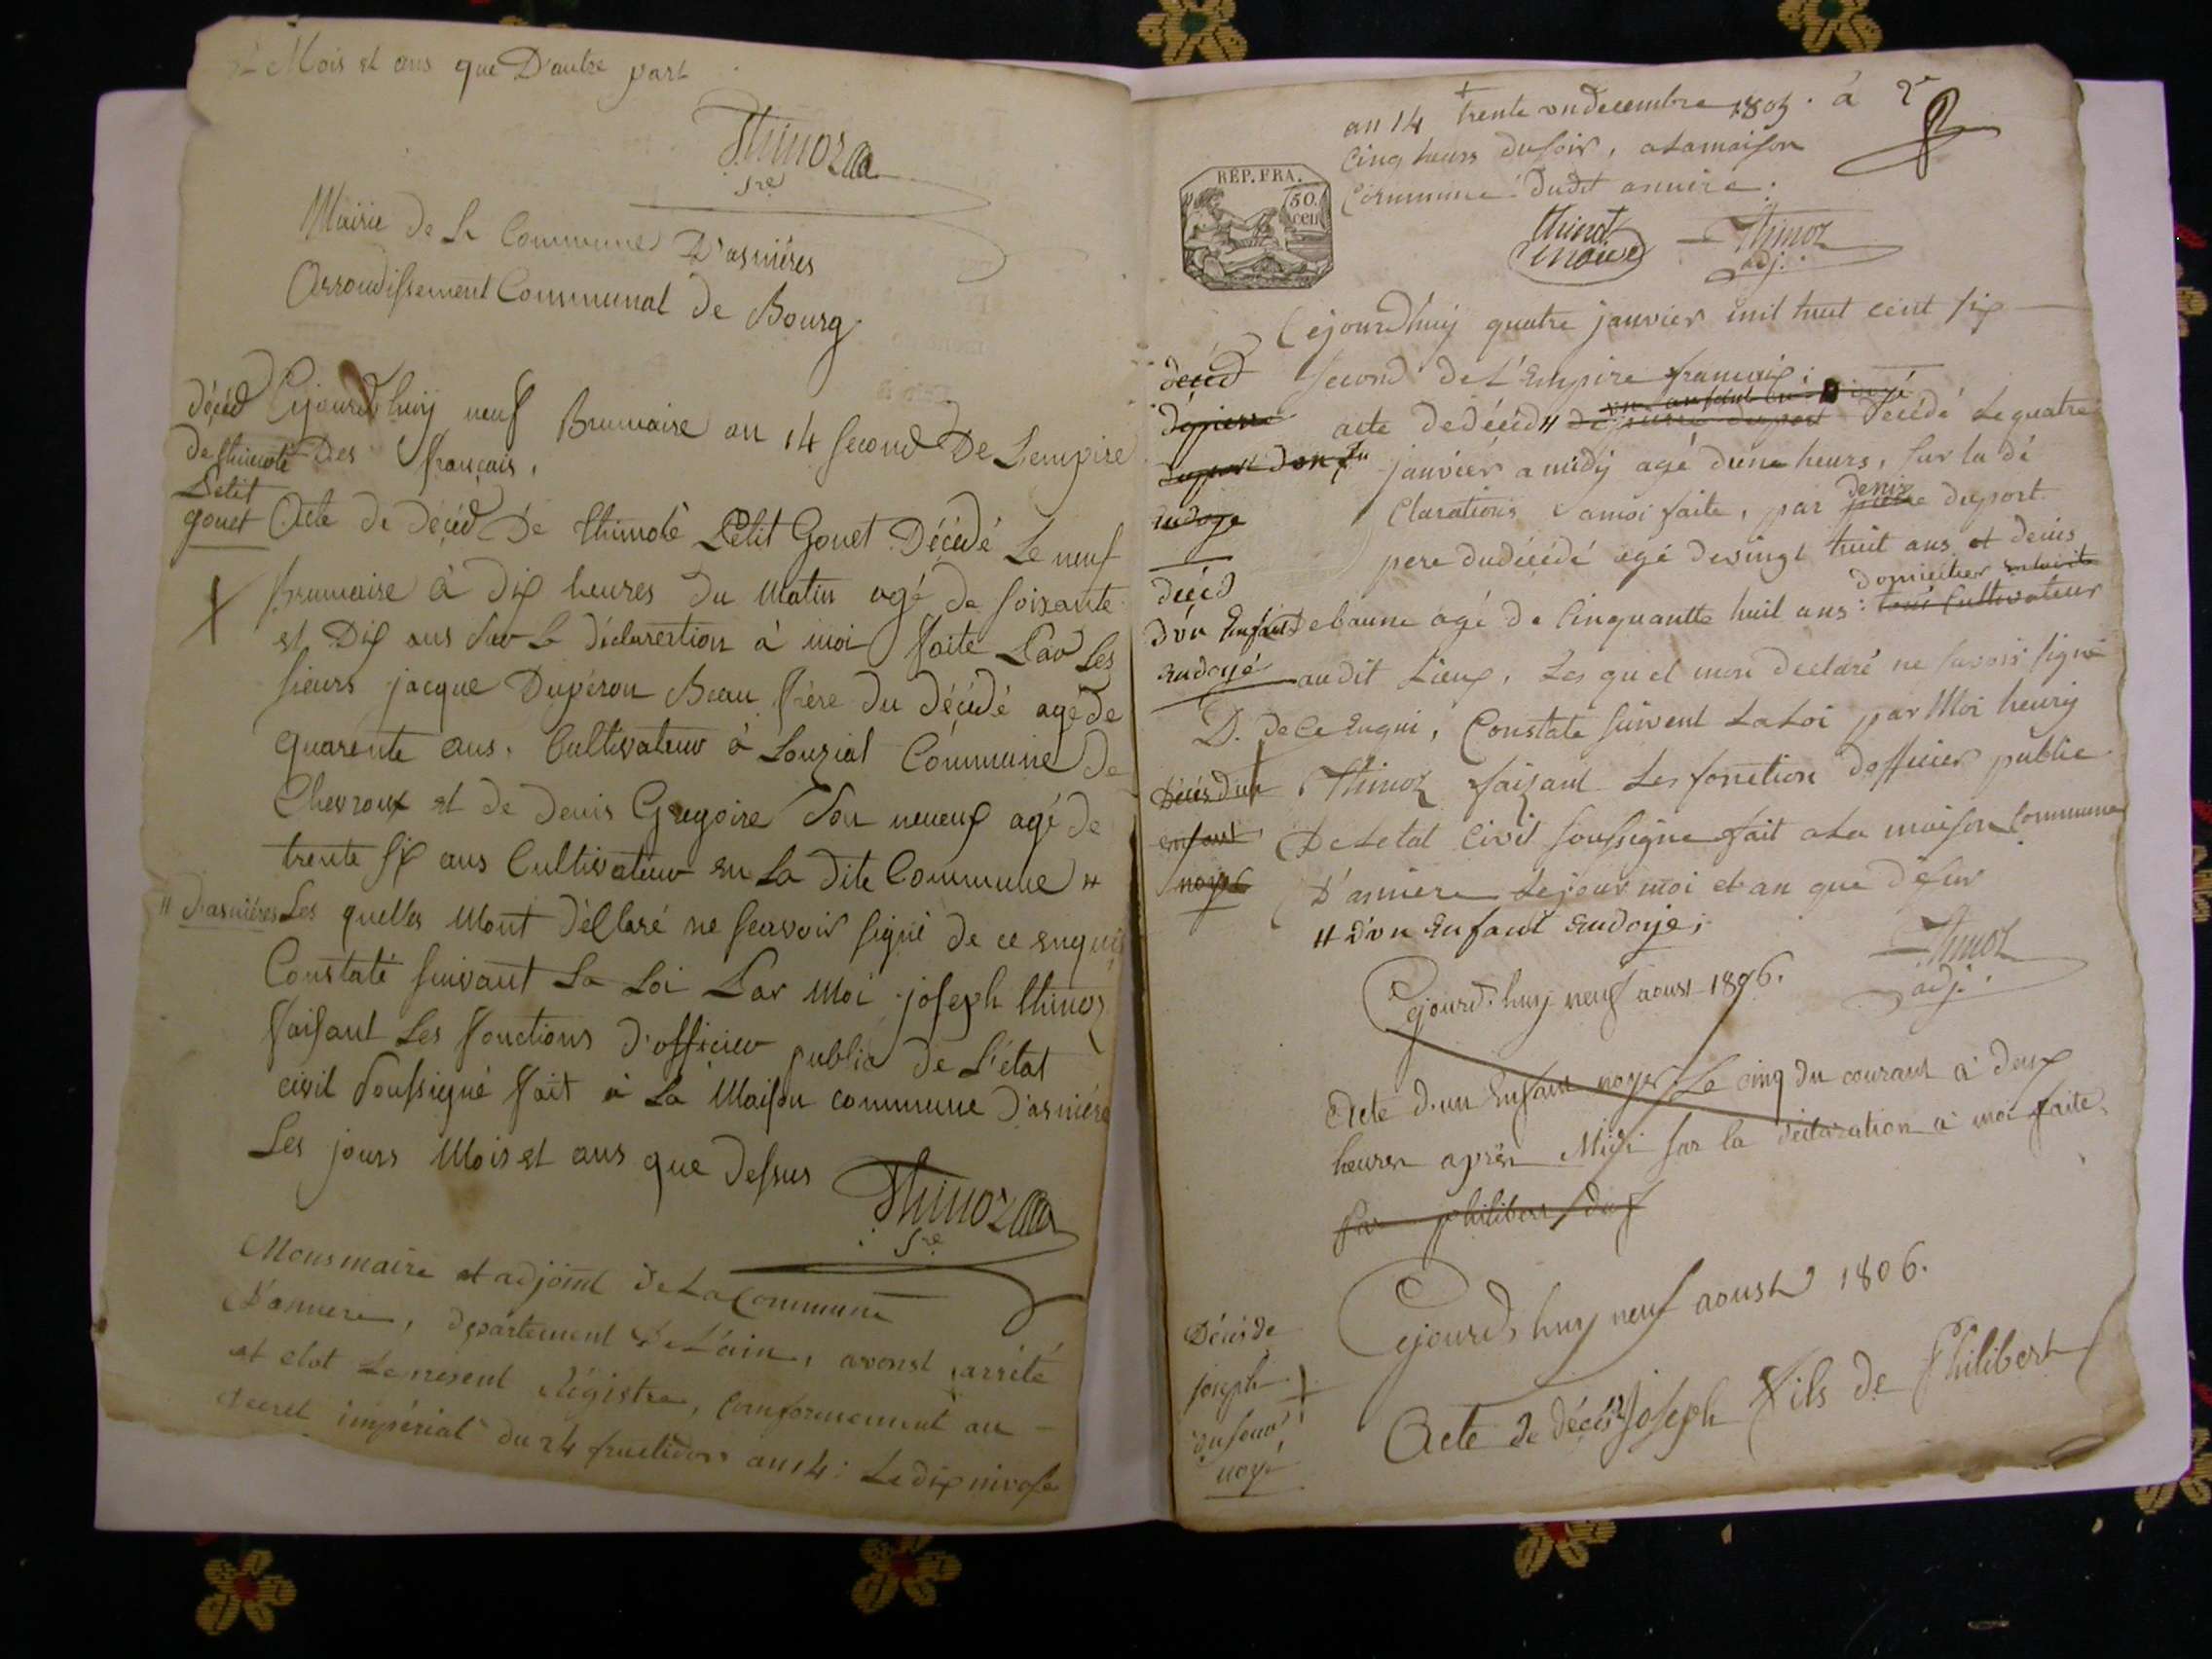 et Mois et ans que D'autre part
Thinoz
Sre
Mairie de La Commune D'asniéres
Arrondissement Communal de Bourg
décéd
de thimoté
Petit
gouet
Cejourd'huij neuf Brumaire an 14 second De L'empire
Des français.
Acte de décéd De thimoté Petit Gouet Décédé Le neuf
brumaire à dix heures du Matin agé de soixante
et Dix ans sur la déclaration à moi faite Par Les
sieurs jacque Dupéron Beau frère du décédé agé de
quarente ans. Cultivateur à Louziat Commune de
Chevroux et de Denis Gregoire son neveux agé de
trente six ans Cultivateur en La dite Commune "
" d'asniéres Les quelles Mont déClaré ne scavoir signé de ce enquis
Constaté suivant La Loi Par Moi joseph thinoz
faisant Les fonctions d'officier public de L'état
civil soussigné fait à La Maison commune d'asniére
Les jours Mois et ans que dessus
Thinoz
Sre
Nous maire et adjoint de La Commune
d'asniere, département De L'ain, avonst arrété
et clot Le present Régistre, Conformement au
decret impérial du 24 fructidor an 14: Le dix nivose
an 14 trente un decembre 1805. à
2e
Cinq heurs du soir, a la maison
Commune dudit asniere.
RÉP. FRA.
50. cen
thinot
maire
Thinoz
adj.
Cejourd'huij quatre janvier mil huit cent six
second de L'Empire français;
décéd
de pierre
duport d'on En
endoye
acte de décéd " de pierre duport décédé Le quatre
janvier a midij agé d'une heurs, sur la dé
Clarations a moi faite, par denis pierre duport
pere du décédé agé de vingt huit ans et denis
décéd
d'un Enfant
endoyé
Debaune agé de Cinquantte huit ans: domicilier tous Cultivateur
audit Lieux, Les quel mon declaré ne savoir signé
D. de Ce enqui, Constate suivent La Loi par Moi henrij
Décés d'un
enfant
noyé
Thinoz faizant Les fonction d'officier public
De L'etat Civil soussigne fait a La maison Commune
D'asniere Le jour moi et an que desur
" d'un Enfant endoye;
Thinoz
adj.
Cejourd'huy neuf aoust 1806.
Acte d'un Enfant noyer. Le cinq du courant à deux
heures après Midi sur la déclaration à moi faite.
par philibert duf
Cejourd'huy neuf aoust 1806.
Décés de
joseph
dufour
noyé
Acte de décés joseph fils de Philibert